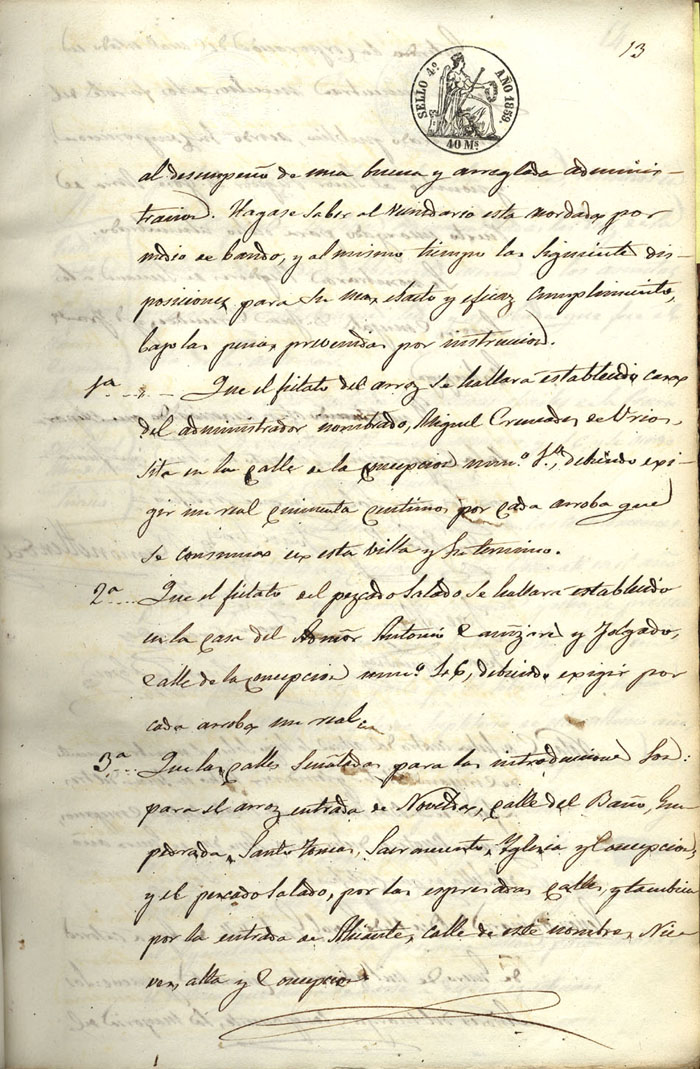 13
SELLO 4º AÑO 1859.
40 Ms.
al desempeño de una buena y arreglada adminis-
tracion. Hagase saber al vecindario esta por
medio de bando, y al mismo tiempo las siguientes dis-
posiciones para su mas esacto y eficaz cumplimiento,
bajo las penas prevenidas por instruccion.
1ª Que el fielato del arroz se hallará establecido casa
del administrador nombrado, Miguel Cremades de Urios,
sita en la calle de la Concepcion num.º 1.º, debiendo exi-
gir un real cincuenta centimos por cada arroba que
se consuma en esta villa y su termino.
2ª Que el fielato del pezcado salado se hallará establecido
en la casa del Admõr Antonio Cañizares y Jolgado,
calle de la Concepcion num.º 16, debiendo exigir por
cada arroba un real.
3ª Que las calles señaladas para las introducciones son:
para el arroz entrada de Novelda, calle del Baño, Em-
pedrada, Santo Tomas, Sacramento, Yglesia y Concepcion,
y el pescado salado, por las espresadas calles, y tambien
por la entrada de Alicante, calle de este nombre, Nie-
ves, alta y Concepcion